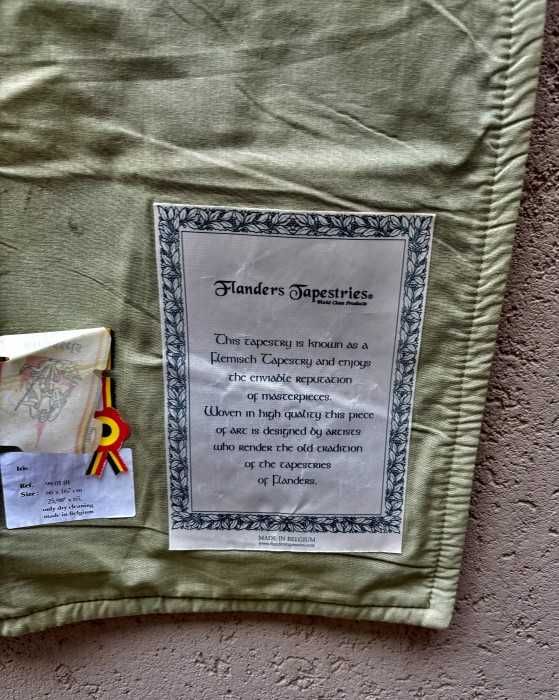 Flanders Tapestries®
World Class Products
This tapestry is known as a
Flemisch Tapestry and enjoys
the enviable reputation
of masterpieces.
Woven in high quality this piece
of art is designed by artists
who render the old tradition
of the tapestries
of Flanders.
MADE IN BELGIUM
www.flanderstapestries.com
Iris
Ref.
Size : 66 x 167 cm
only dry cleaning
made in Belgium